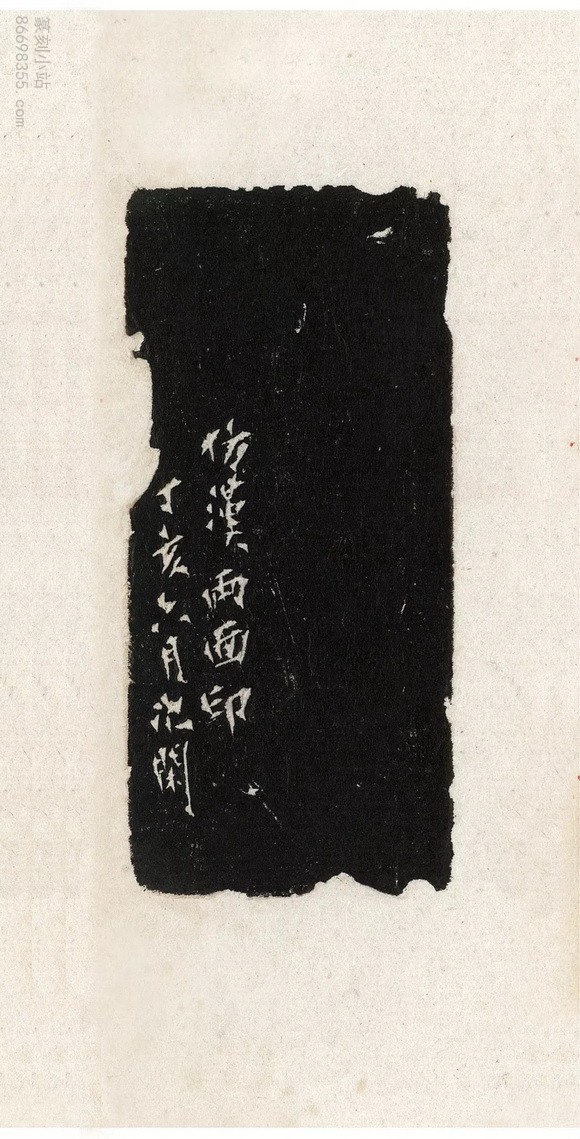 篆刻小站
86698355. com
仿漢兩面印
丁亥六月閑